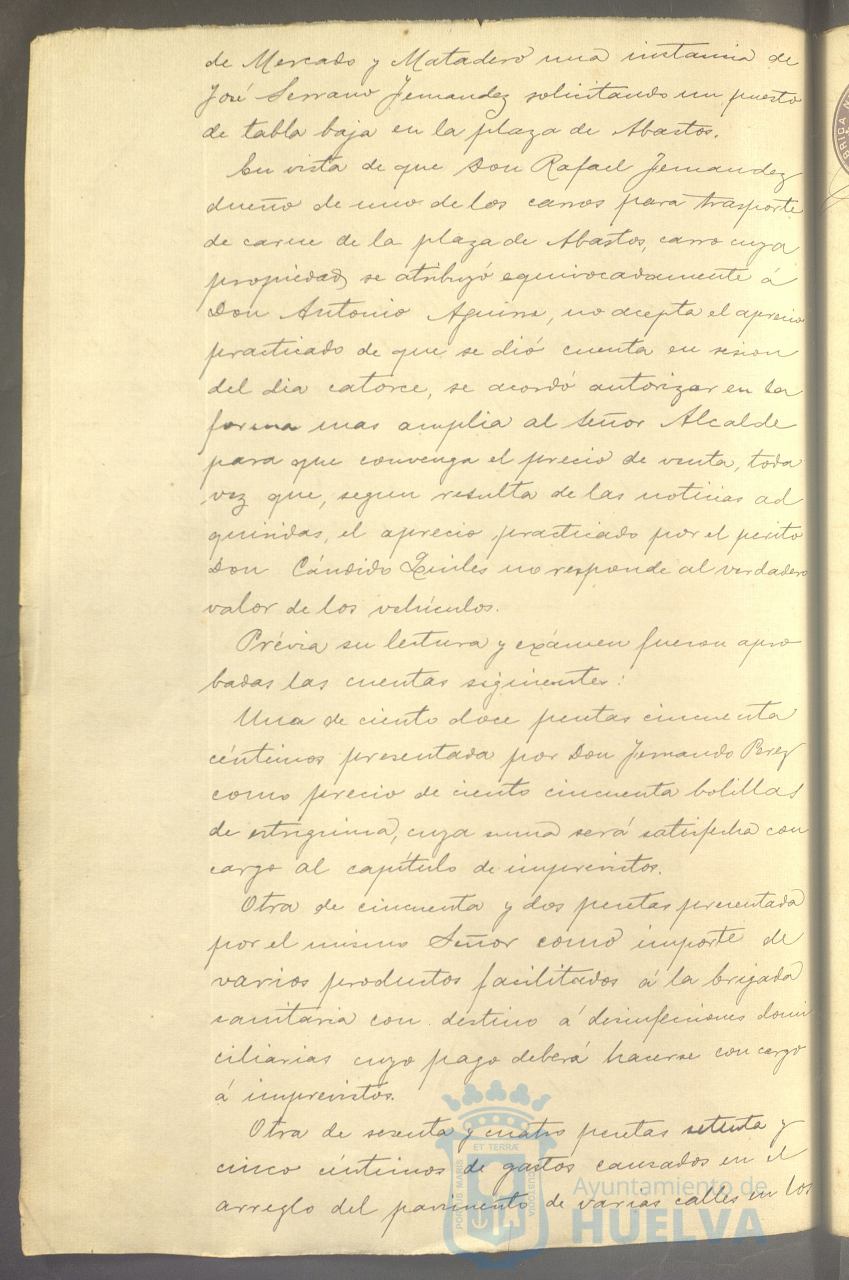 de Mercado y Matadero una instancia de
José Serrano Fernandez solicitando un puesto
de tabla baja en la plaza de Abastos.
En vista de que Don Rafael Fernandez
dueño de uno de los carros para trasporte
de carne de la plaza de Abastos, carro cuya
propiedad se atribuyó equivocadamente á
Don Antonio Aguirre, no acepta el aprecio
practicado de que se dió cuenta en sesion
del dia catorce, se acordó autorizar en la
forma mas amplia al Señor Alcalde
para que convenga el precio de venta, toda
vez que, segun resulta de las noticias ad
quiridas, el aprecio practicado por el perito
Don Cándido Quiles no responde al verdadero
valor de los vehículos.
Prévia su lectura y exámen fueron apro
badas las cuentas siguientes:
Una de ciento doce pesetas cincuenta
céntimos presentada por Don Fernando Perez
como precio de ciento cincuenta bolillas
de estrignina, cuya suma será satisfecha con
cargo al capítulo de imprevistos.
Otra de cincuenta y dos pesetas presentada
por el mismo Señor como importe de
varios productos facilitados á la brigada
sanitaria con destino á desinfecciones domi
ciliarias cuyo pago deberá hacerse con cargo
á imprevistos.
Otra de sesenta y cuatro pesetas setenta y
cinco céntimos de gastos causados en el
arreglo del pavimento de varias calles en los
PORTUS MARIS ET TERRÆ CUSTODIA
Ayuntamiento de
HUELVA